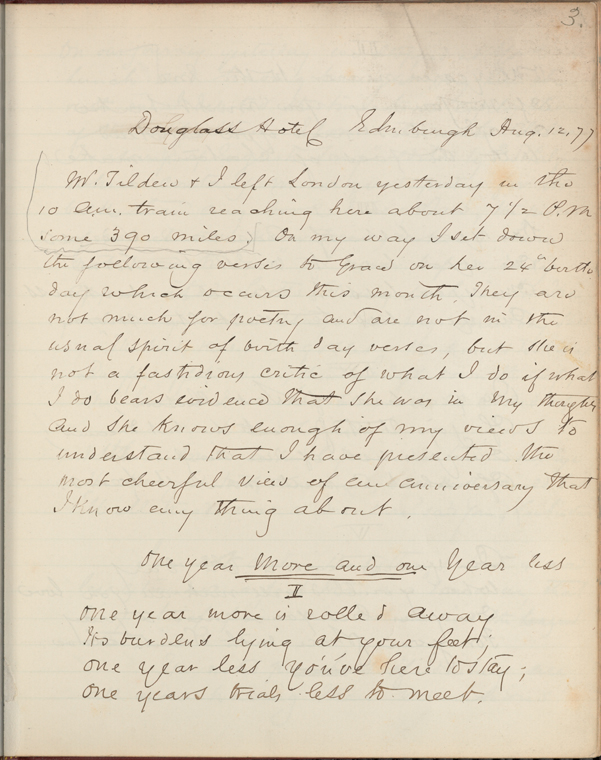 3.
Douglass Hotel Edinburgh Aug. 12, 77
Mr. Tilden & I left London yesterday in the
10 a.m. train reaching here about 7 1/2 P.M
some 390 miles. On my way I set down
the following verses to Grace on her 24th birth
day which occurs this month. They are
not much for poetry and are not in the
usual spirit of birth day verses, but she is
not a fastidious critic of what I do if what
I do bears evidence that she was in my thoughts
and she knows enough of my views to
understand that I have presented the
most cheerful view of an anniversary that
I know any thing about.
One year More and one Year less
II
One year more is rolled away
Its burdens lying at your feet;
One year less you've here to stay;
One years trials less to meet.